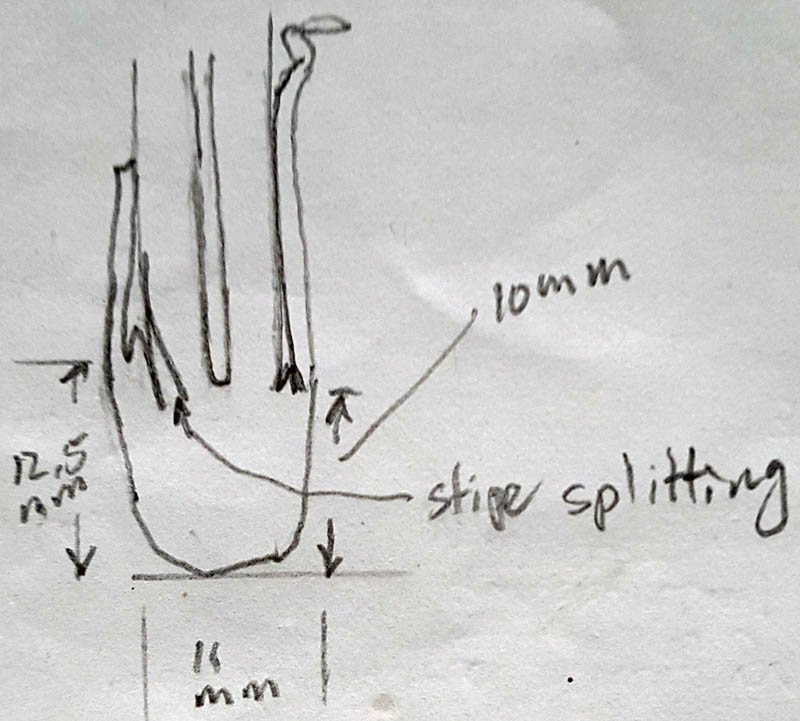 10mm
12.5
mm
stipe splitting
11
mm